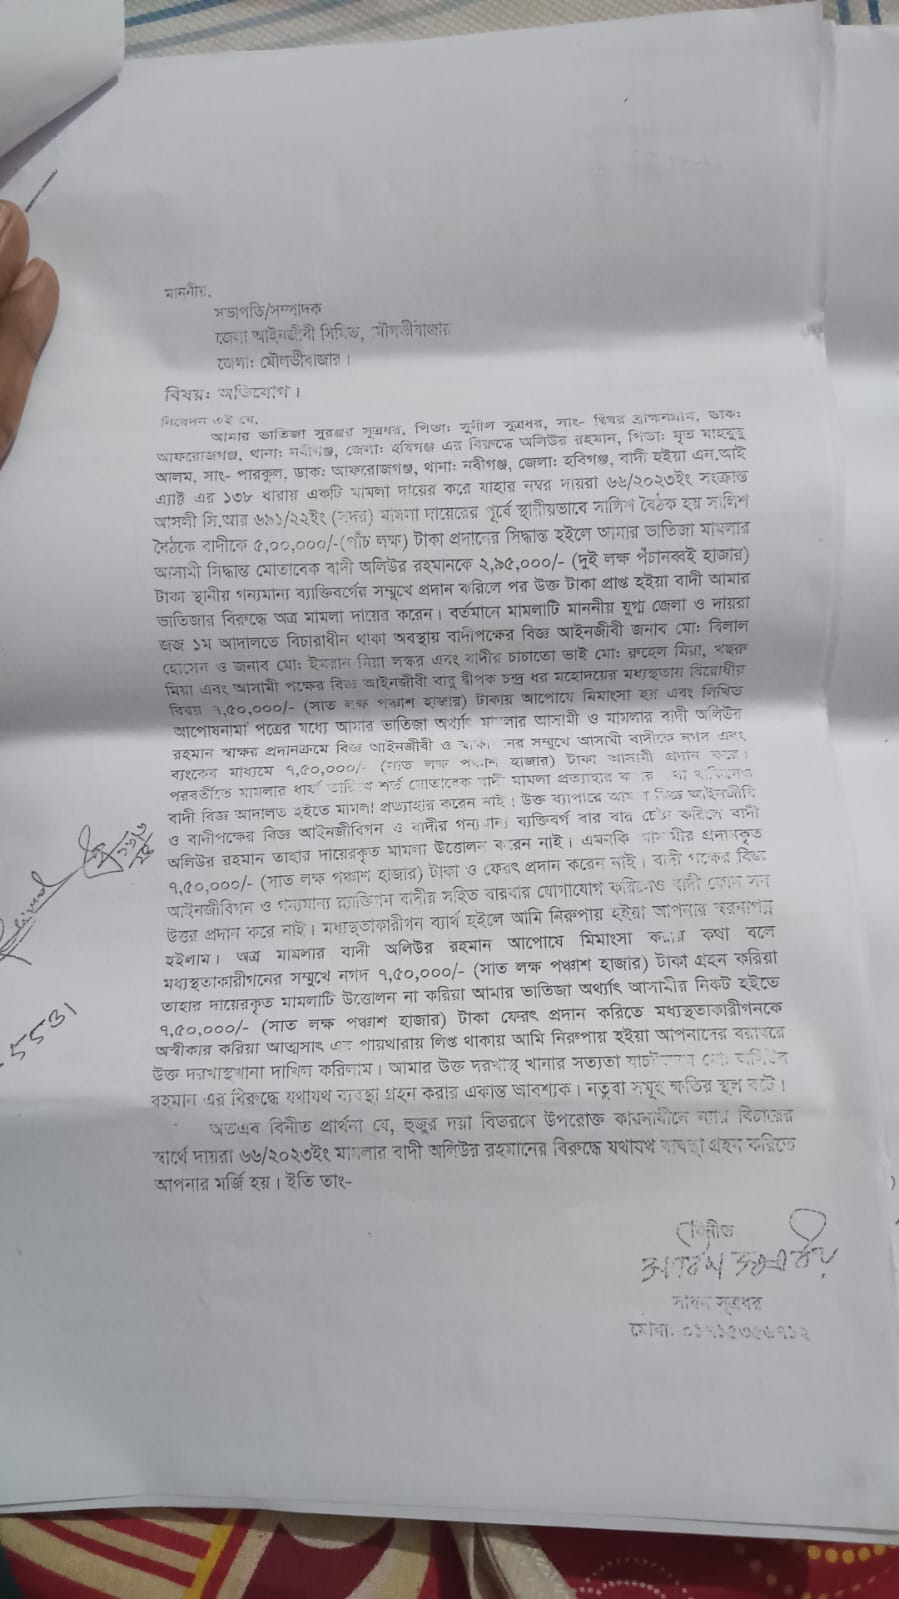 মাননীয়,
সভাপতি/সম্পাদক
জেলা আইনজীবী সিমিত, মৌলভীবাজার
জেলা: মৌলভীবাজার।
বিষয়: অভিযোগ।
নিবেদন এই যে,
আমার ভাতিজা সুরঞ্জর সূত্রধর, পিতা: সুনীল সূত্রধর, সাং- দ্বিঘর ব্রাহ্মনগ্রাম, ডাক:
আফরোজগঞ্জ, থানা: নবীগঞ্জ, জেলা: হবিগঞ্জ এর বিরুদ্ধে অলিউর রহমান, পিতা: মৃত মাহবুবু
আলম, সাং- পারকুল, ডাক: আফরোজগঞ্জ, থানা: নবীগঞ্জ, জেলা: হবিগঞ্জ, বাদী হইয়া এন.আই
এ্যাক্ট এর ১৩৮ ধারায় একটি মামলা দায়ের করে যাহার নম্বর দায়রা ৬৬/২০২৩ইং সংক্রান্ত
আসলী সি.আর ৬৯১/২২ইং (সদর) মামলা দায়েরের পূর্বে স্থানীয়ভাবে সালিশ বৈঠক হয় সালিশ
বৈঠকে বাদীকে ৫,০০,০০০/-(পাঁচ লক্ষ) টাকা প্রদানের সিদ্ধান্ত হইলে আমার ভাতিজা মামলার
আসামী সিদ্ধান্ত মোতাবেক বাদী অলিউর রহমানকে ২,৯৫,০০০/- (দুই লক্ষ পঁচানব্বই হাজার)
টাকা স্থানীয় গন্যমান্য ব্যাক্তিবর্গের সম্মুখে প্রদান করিলে পর উক্ত টাকা প্রাপ্ত হইয়া বাদী আমার
ভাতিজার বিরুদ্ধে অত্র মামলা দায়ের করেন। বর্তমানে মামলাটি মাননীয় যুগ্ম জেলা ও দায়রা
জজ ১ম আদালতে বিচারাধীন থাকা অবস্থায় বাদীপক্ষের বিজ্ঞ আইনজীবী জনাব মো: বিলাল
হোসেন ও জনাব মো: ইমরান মিয়া লস্কর এবং বাদীর চাচাতো ভাই মো: রুহেল মিয়া, খছরু
মিয়া এবং আসামী পক্ষের বিজ্ঞ আইনজীবী বাবু দ্বীপক চন্দ্র ধর মহোদয়ের মধ্যস্থতায় বিরোধীয়
বিষয় ৭,৫০,০০০/- (সাত লক্ষ পঞ্চাশ হাজার) টাকায় আপোষে মিমাংসা হয় এবং লিখিত
আপোষনামা পত্রের মধ্যে আমার ভাতিজা অর্থ্যাৎ মামলার আসামী ও মামলার বাদী অলিউর
রহমান স্বাক্ষর প্রদানক্রমে বিজ্ঞ আইনজীবী ও সম্মুখে আসামী বাদীকে নগদ এবং
ব্যাংকের মাধ্যমে ৭,৫০,০০০/- (সাত লক্ষ পঞ্চাশ হাজার) টাকা আসামী প্রদান করে।
পরবর্তীতে মামলার ধার্য্য তারিখে শর্ত মোতাবেক বাদী মামলা প্রত্যাহার
বাদী বিজ্ঞ আদালত হইতে মামলা প্রত্যাহার করেন নাই। উক্ত ব্যাপারে বিজ্ঞ আইনজীবি
ও বাদীপক্ষের বিজ্ঞ আইনজীবিগন ও বাদীর গন্যমান্য ব্যক্তিবর্গ বার বার চেষ্টা করিলে বাদী
অলিউর রহমান তাহার দায়েরকৃত মামলা উত্তোলন করেন নাই। এমনকি আসামীর প্রদানকৃত
৭,৫০,০০০/- (সাত লক্ষ পঞ্চাশ হাজার) টাকা ও ফেরৎ প্রদান করেন নাই। বাদী পক্ষের বিজ্ঞ
আইনজীবিগন ও গন্যমান্য ব্যাক্তিগন বাদীর সহিত বারবার যোগাযোগ করিলেও বাদী কোন
উত্তর প্রদান করে নাই। মধ্যস্থতাকারীগন ব্যার্থ হইলে আমি নিরুপায় হইয়া আপনার স্বরনাপন্ন
হইলাম। অত্র মামলার বাদী অলিউর রহমান আপোষে মিমাংসা করার কথা বলে
মধ্যস্থতাকারীগনের সম্মুখে নগদ ৭,৫০,০০০/- (সাত লক্ষ পঞ্চাশ হাজার) টাকা গ্রহন করিয়া
তাহার দায়েরকৃত মামলাটি উত্তোলন না করিয়া আমার ভাতিজা অর্থ্যাৎ আসামীর নিকট হইতে
৭,৫০,০০০/- (সাত লক্ষ পঞ্চাশ হাজার) টাকা ফেরৎ প্রদান করিতে মধ্যস্থতাকারীগনকে
অস্বীকার করিয়া আত্মসাৎ এর পায়থারায় লিপ্ত থাকায় আমি নিরুপায় হইয়া আপনাদের বরাবরে
উক্ত দরখাস্থখানা দাখিল করিলাম। আমার উক্ত দরখাস্থ খানার সত্যতা মো: অলিউর
রহমান এর বিরুদ্ধে যথাযথ ব্যবস্থা গ্রহন করার একান্ত আবশ্যক। নতুবা সমূহ ক্ষতির স্থল বটে।
অতএব বিনীত প্রার্থনা যে, হুজুর দয়া বিতরনে উপরোক্ত কারনাধীনে ন্যায় বিচারের
স্বার্থে দায়রা ৬৬/২০২৩ইং মামলার বাদী অলিউর রহমানের বিরুদ্ধে যথাযথ ব্যবস্থা গ্রহন করিতে
আপনার মর্জি হয়। ইতি তাং-
বিনীত
সূত্রধর
মোবা: